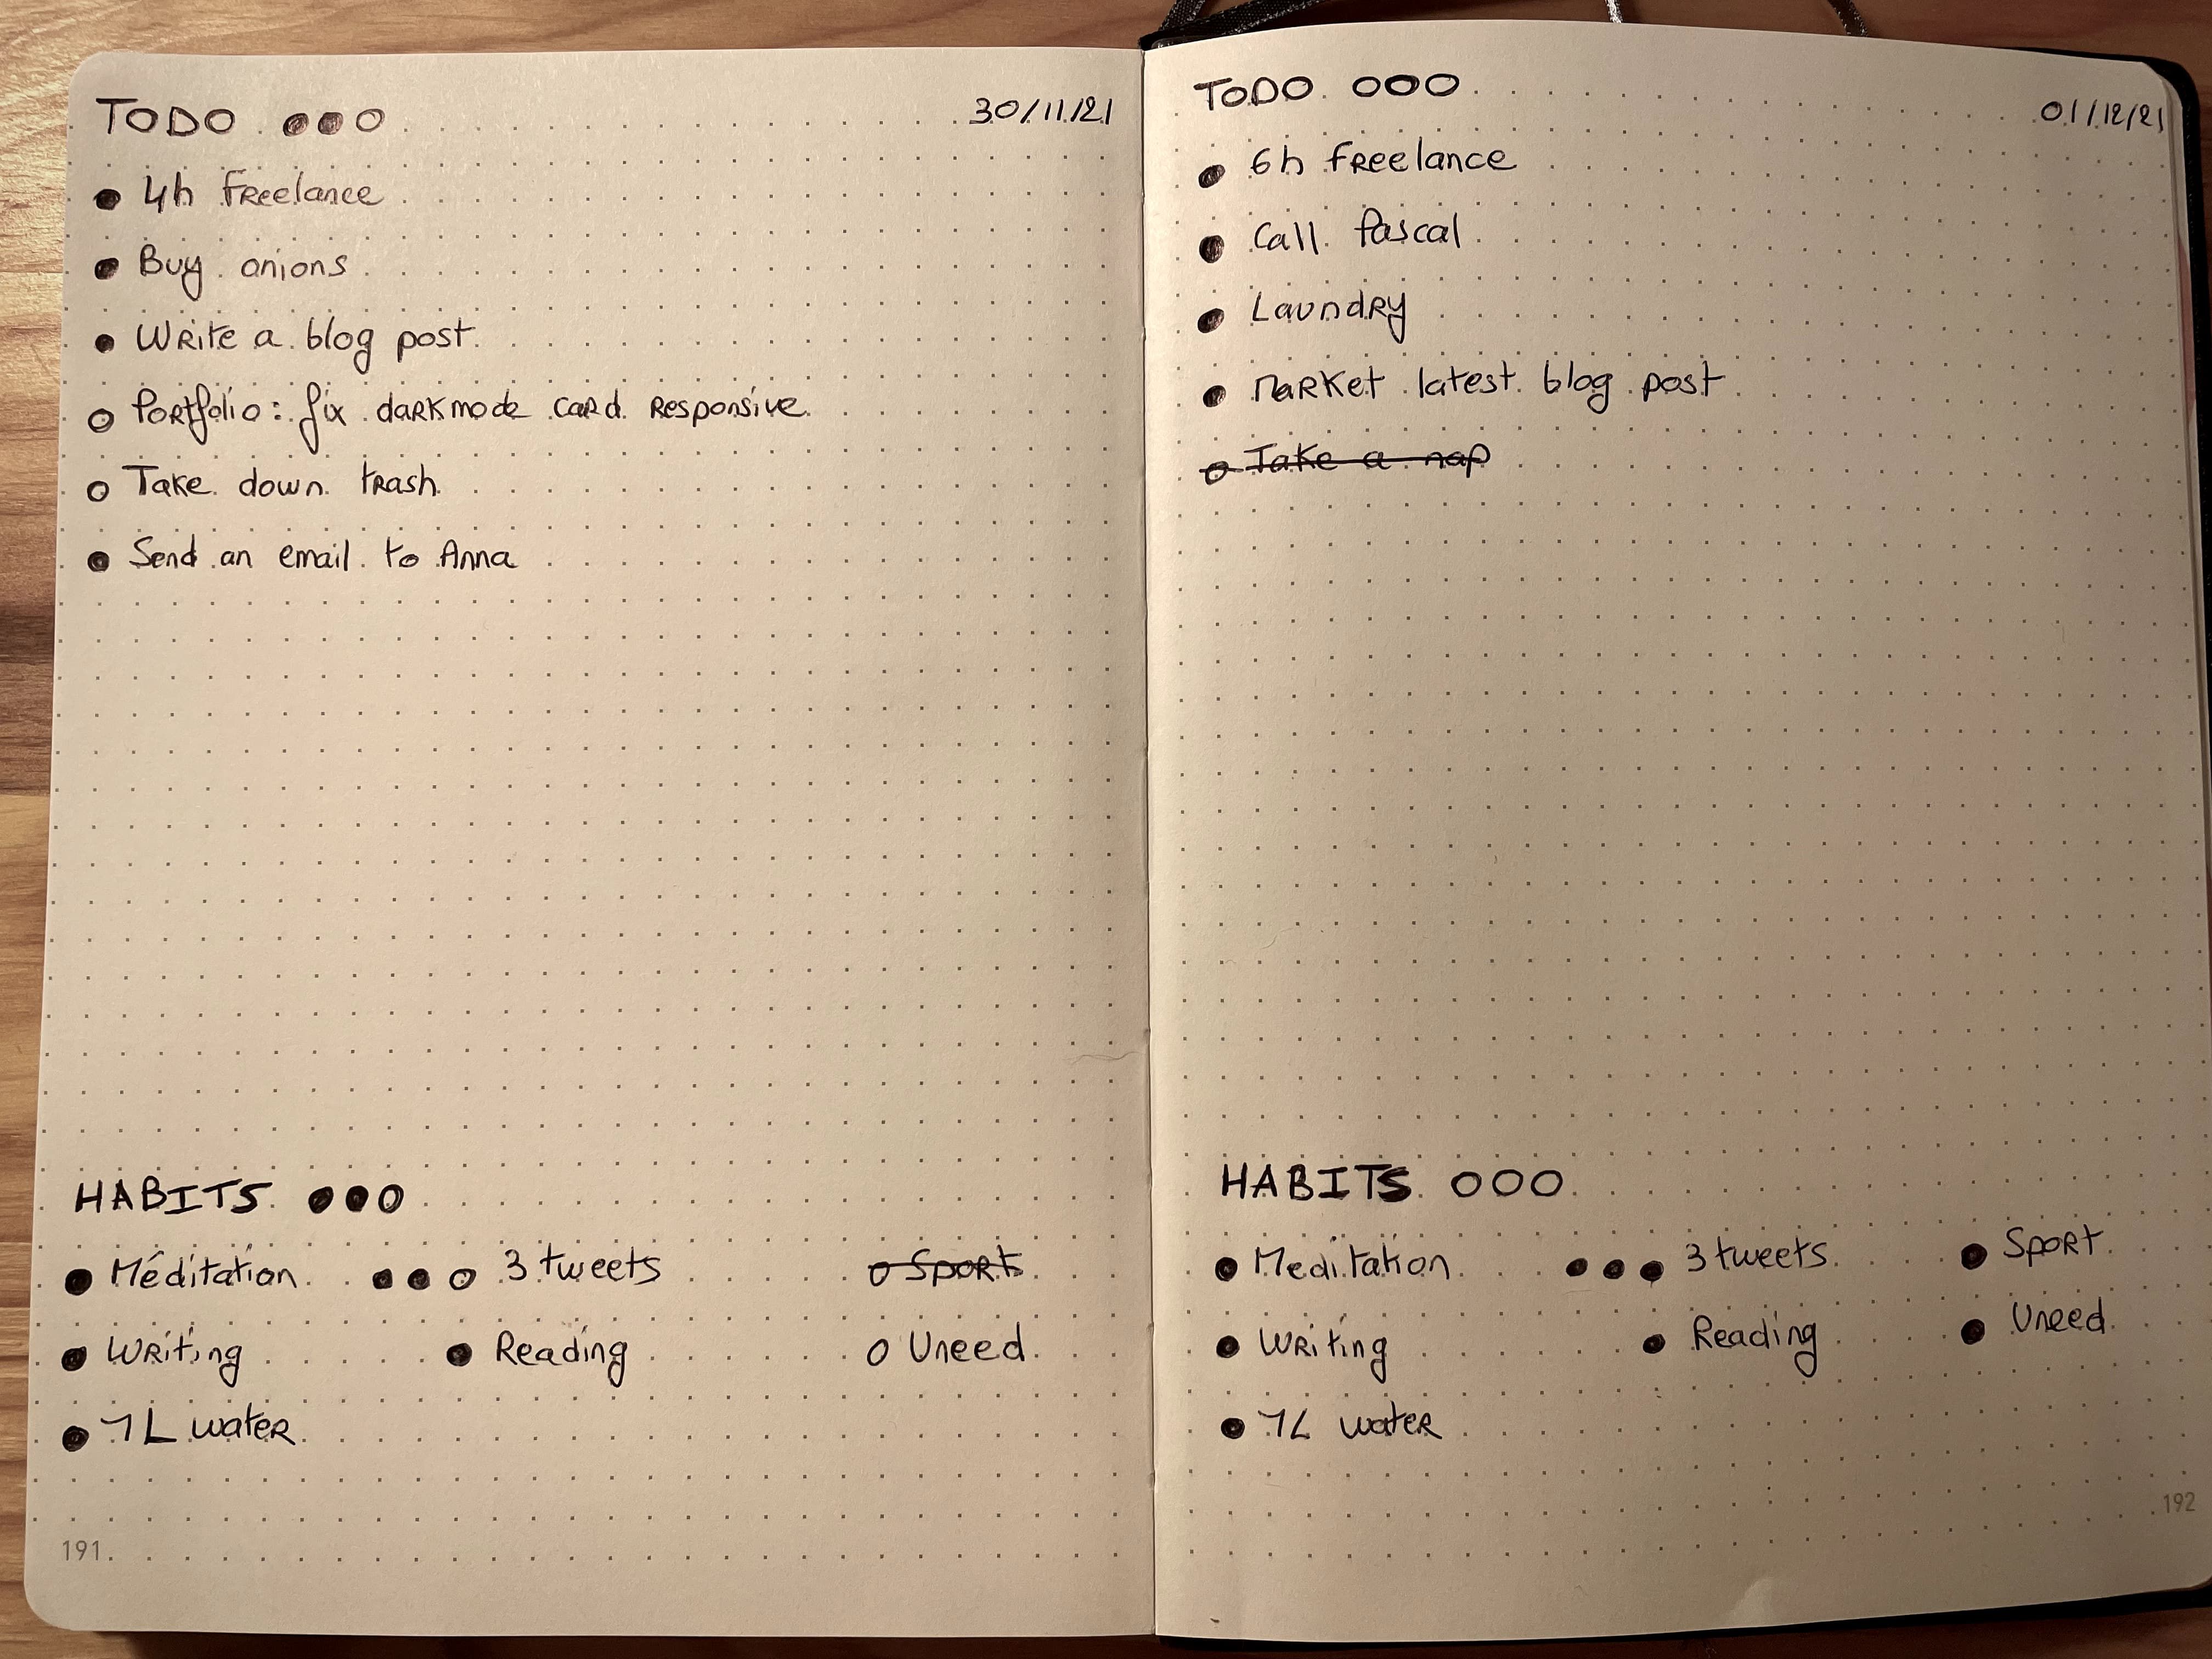 TODO
30/11/21
4h Freelance
Buy onions
Write a blog post
Portfolio: fix darkmode card responsive
Take down trash
Send an email to Anna
HABITS
Méditation 3 tweets Sport
Writing Reading Uneed
1L water
191
TODO
01/12/21
6h freelance
Call Pascal
Laundry
Market latest blog post
Take a nap
HABITS
Meditation 3 tweets Sport
Writing Reading Uneed
1L water
192